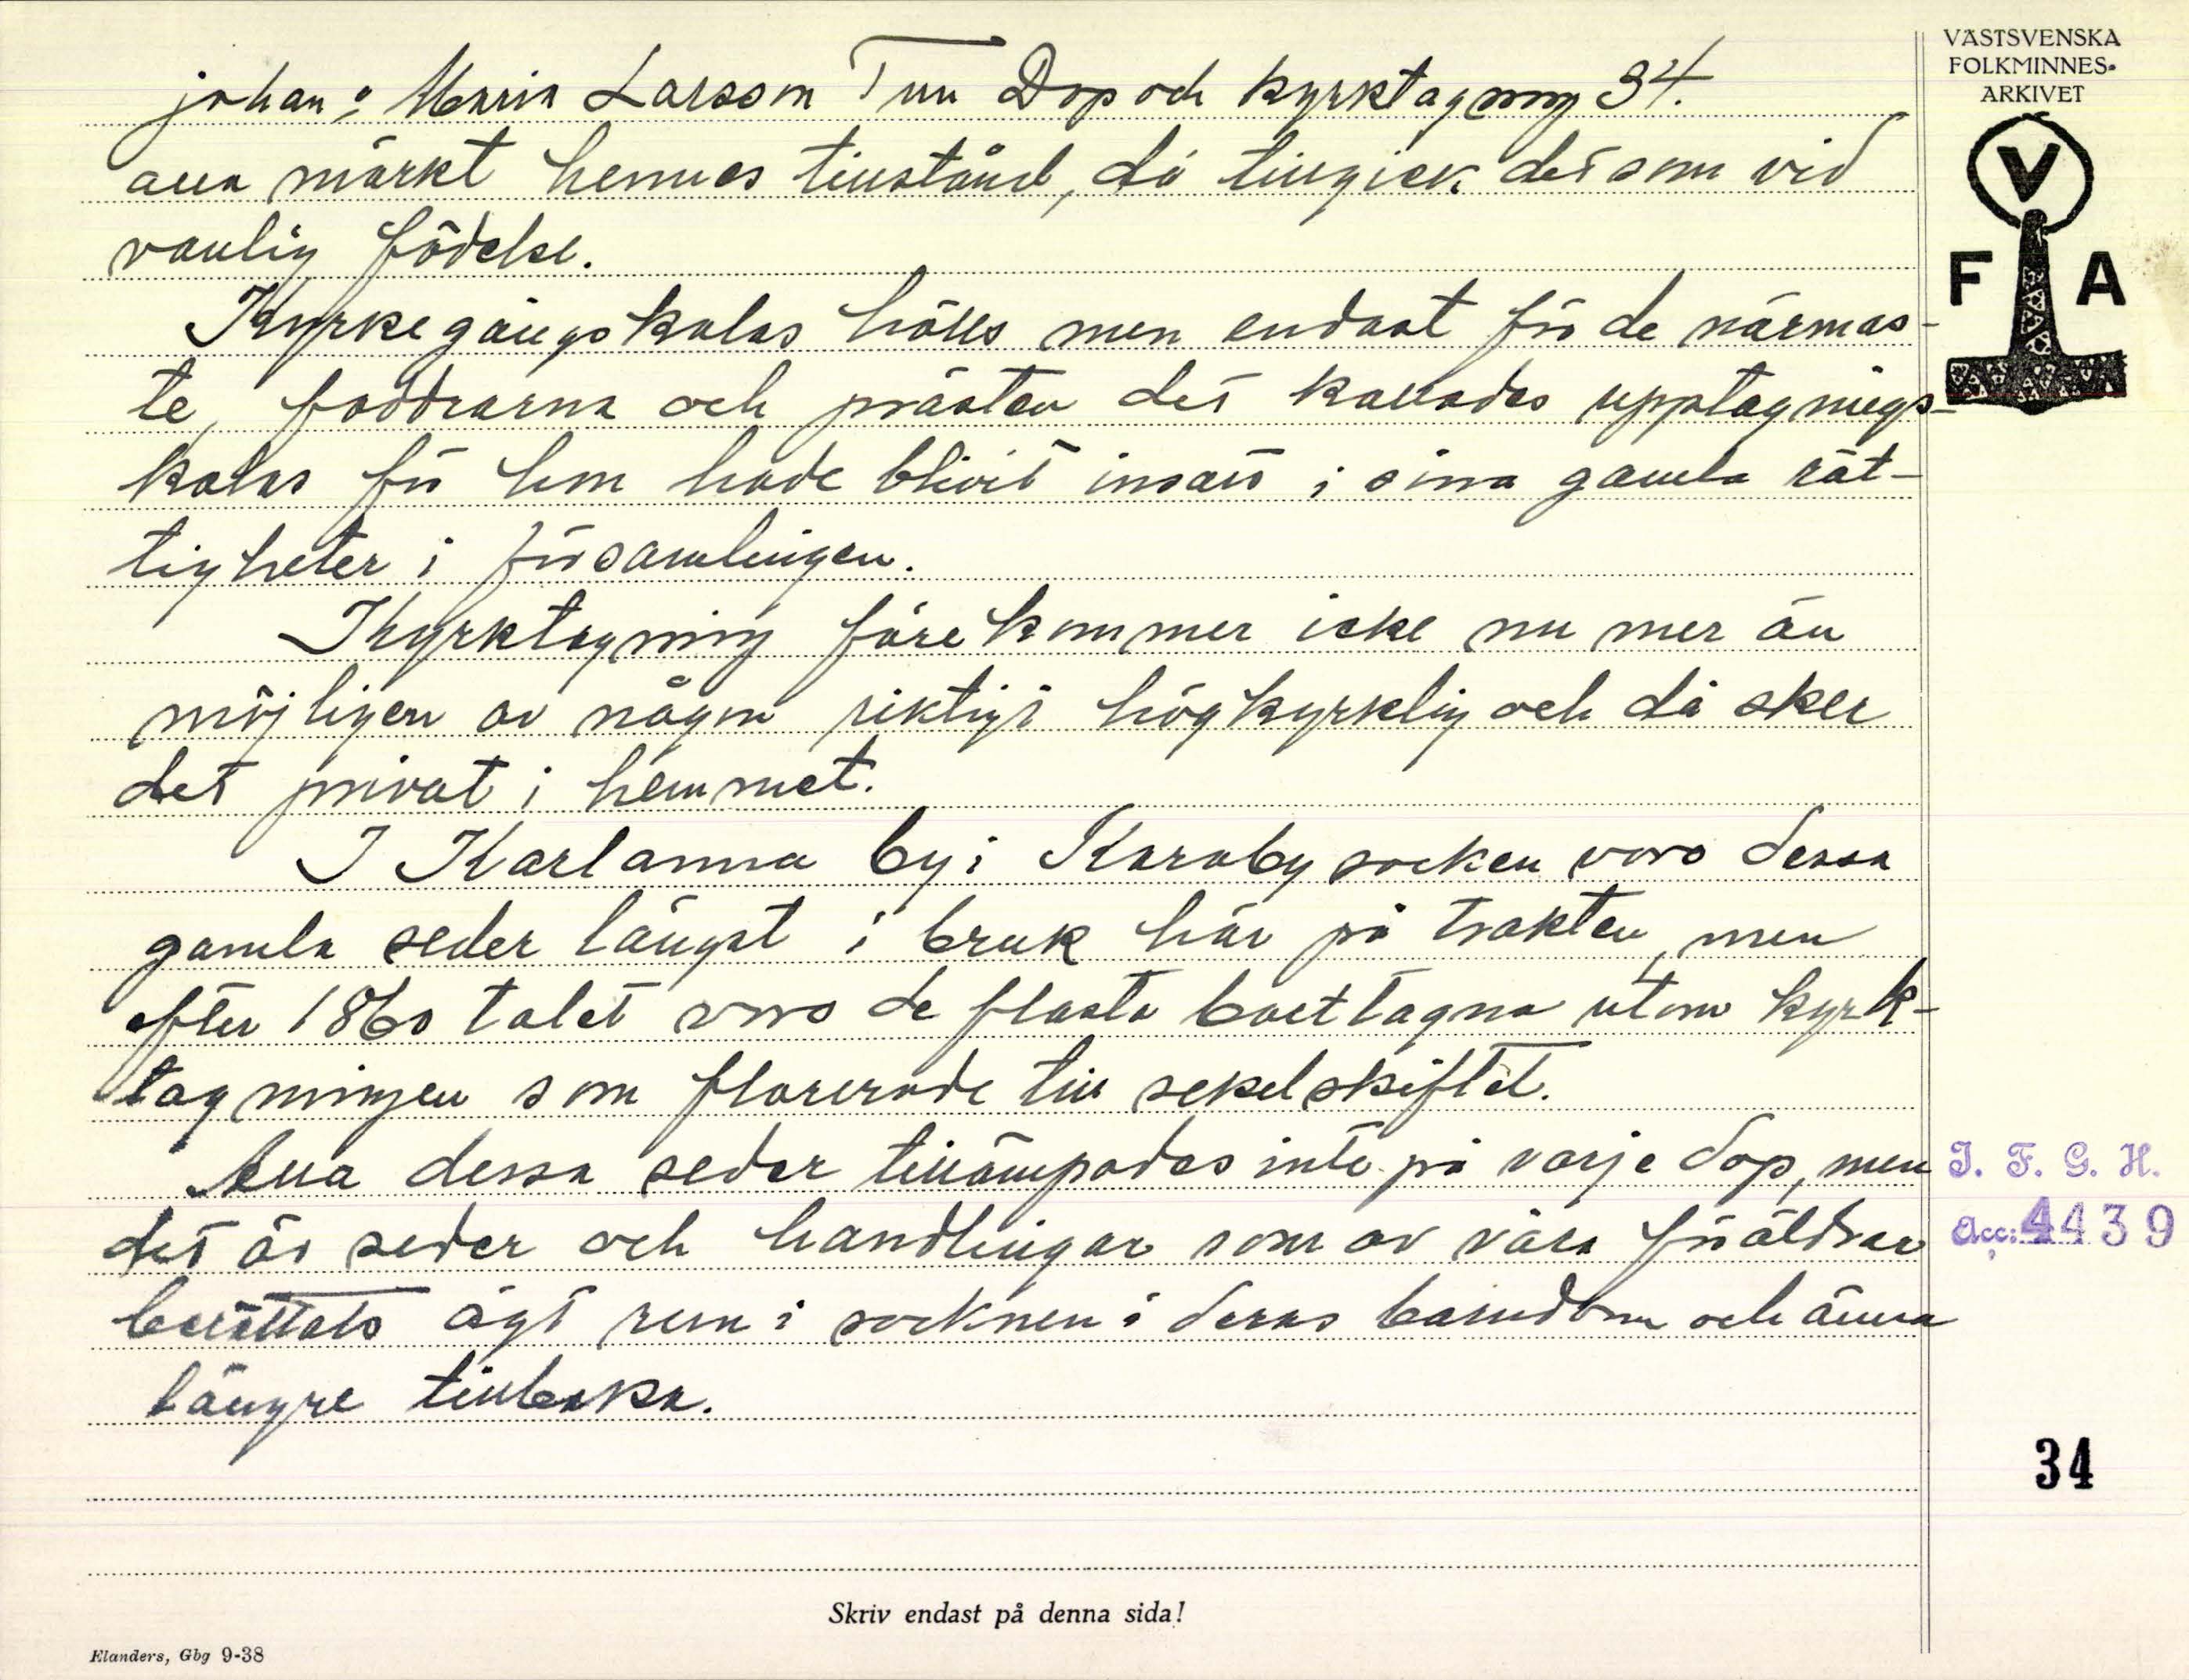 VÄSTSVENSKA
FOLKMINNES-
ARKIVET
V
F A
johan: Maria Larsson Tun Dop och kyrktagning 34.
alla märkt hennes tillstånd, då tillgick det som vid
vanlig födelse.
Kyrkegångskalas hölls men endast för de närmas-
te, faddrarna och prästen det kallades upptagnings-
kalas för hon hade blivit insatt i sina gamla rät-
tigheter i församlingen.
Kyrktagning förekommer icke nu mer än
möjligen av någon riktigt högkyrklig och då sker
det privat i hemmet.
I Karlanna by i Karaby socken voro dessa
gamla seder längst i bruk här på trakten, men
efter 1860 talet voro de flasta borttagna utom kyrk-
tagningen som florerade till sekelskiftet.
Alla dessa seder tillämpades inte på varje dop, men
det är seder och handlingar som av våra föräldrar
berättats ägt rum i socknen i deras barndom och ännu
längre tillbaka.
I. F. G. H.
Acc: 4439
34
Skriv endast på denna sida!
Elanders, Gbg 9-38